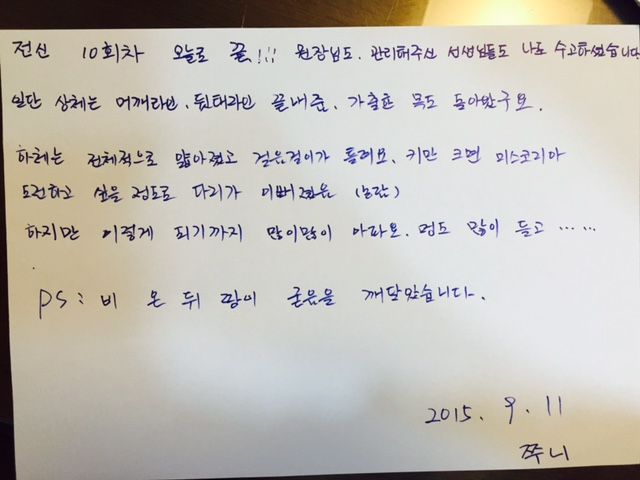 전신 10회차 오늘로 끝!!! 원장님도, 관리해주신 선생님들도 나도 수고하셨습니다
일단 상체는 어깨라인, 뒤태라인 끝내줌, 가출한 목도 돌아왔구요.
하체는 전체적으로 얇아졌고 걸음걸이가 틀려요, 키만 크면 미스코리아
도전하고 싶을 정도로 다리가 이뻐졌음 (놀람)
하지만 이렇게 되기까지 많이많이 아파요. 멍도 많이 들고 ……
PS : 비 온 뒤 땅이 굳음을 깨달았습니다.
2015. 9. 11
쭈니